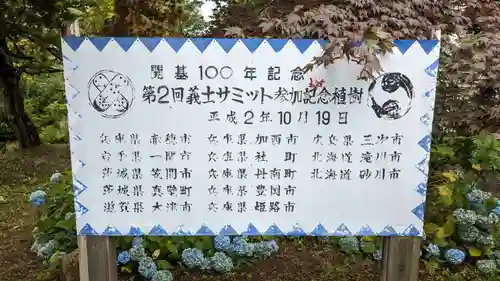 開基100年記念
第2回義士サミット参加記念植樹
平成2年10月19日
兵庫県 赤穂市 兵庫県 加西市 兵庫県 三次市
岩手県 一関市 兵庫県 社町 北海道 滝川市
茨城県 笠間市 兵庫県 丹南町 北海道 砂川市
茨城県 真壁町 兵庫県 豊岡市
滋賀県 大津市 兵庫県 姫路市